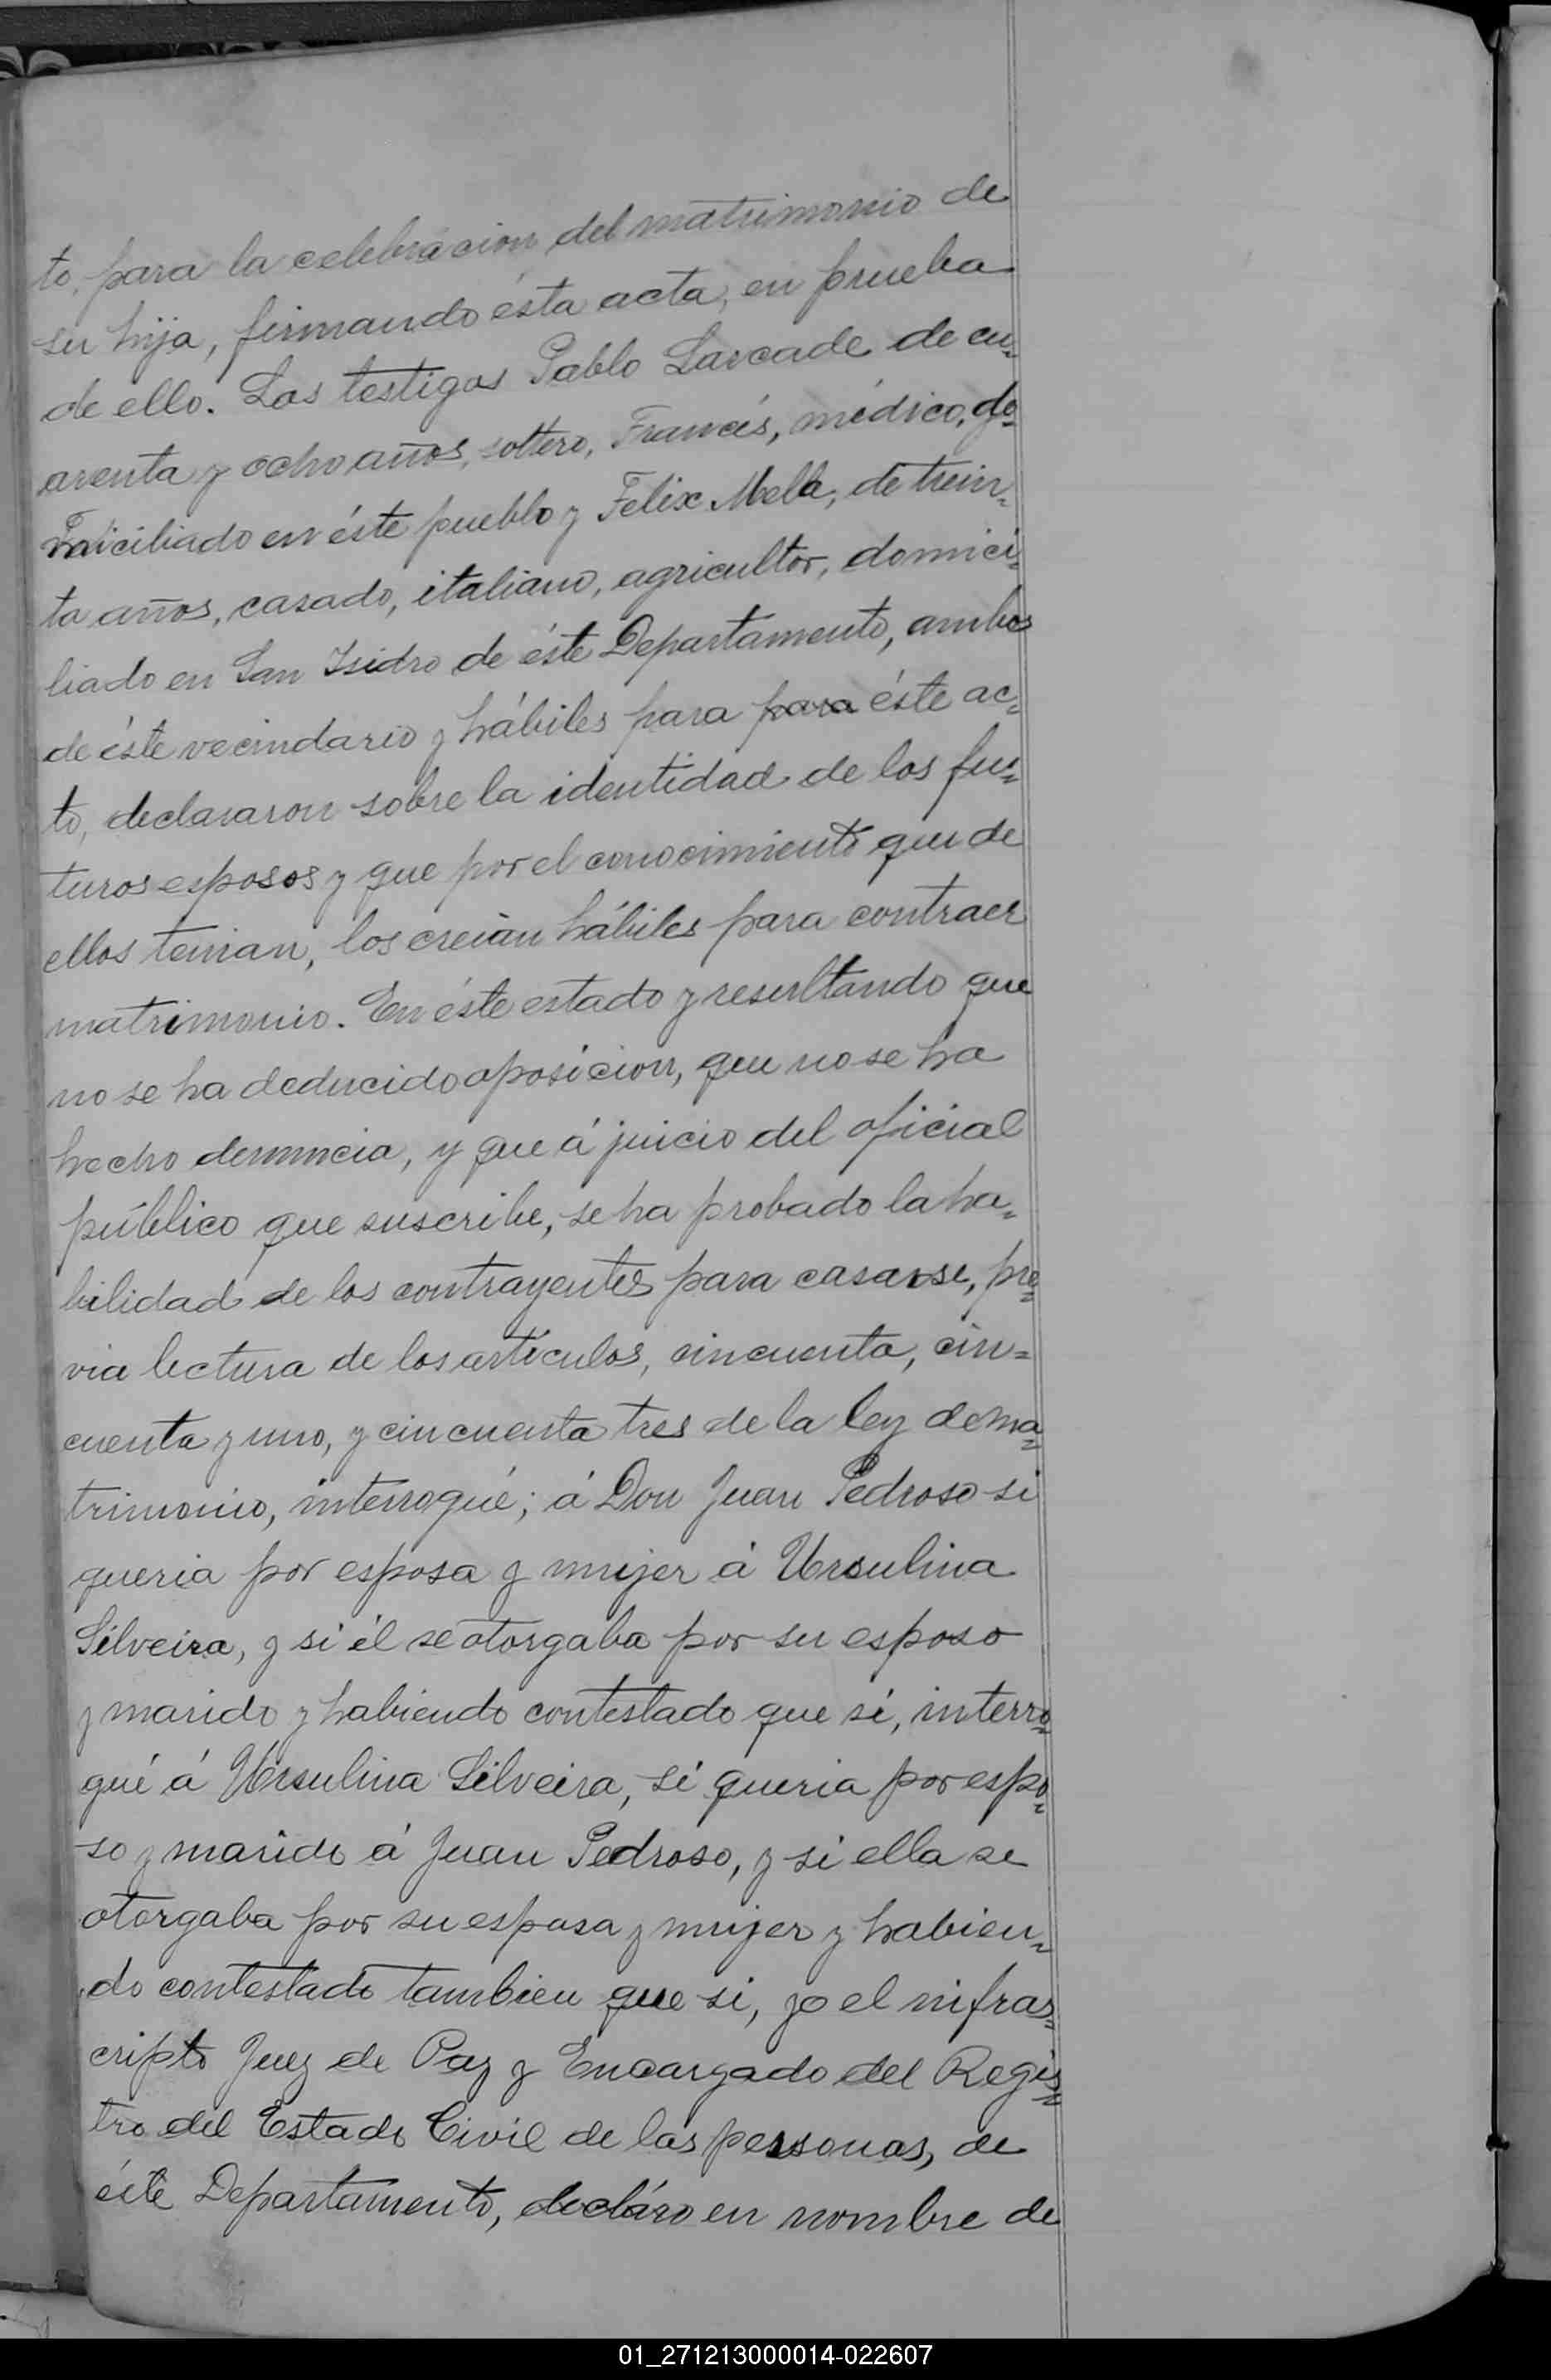 to, para la celebracion del matrimonio de
su hija, firmando ésta acta, en prueba
de ello. Los testigos Pablo Larcade de cu=
arenta y ocho años, soltero, Francés, médico, do=
miciliado en éste pueblo y Felix Mella, de trein=
ta años, casado, italiano, agricultor, domici=
liado en San Isidro de éste Departamento, ambos
de éste vecindario y hábiles para para éste ac=
to, declararon sobre la identidad de los fu=
turos esposos y que por el conocimiento que de
ellos tenian, los creian hábiles para contraer
matrimonio. En éste estado y resultando que
no se ha deducido oposicion, que no se ha
hecho denuncia, y que á juicio del oficial
público que suscribe, se ha probado la ha=
bilidad de los contrayentes para casarse, pre=
via lectura de los artículos, cincuenta, cin=
cuenta y uno, y cincuenta tres de la ley de ma=
trimonio, interrogué; á Don Juan Pedroso si
queria por esposa y mujer á Ursulina
Silveira, y si él se otorgaba por su esposo
y marido y habiendo contestado que si, interro=
gué á Ursulina Silveira, si queria por espo=
so y marido á Juan Pedroso, y si ella se
otorgaba por su esposa y mujer y habien=
do contestado tambien que si, yo el infras=
cripto Juez de Paz y Encargado del Regis=
tro del Estado Civil de las personas, de
éste Departamento, decláro en nombre de
01_271213000014-022607